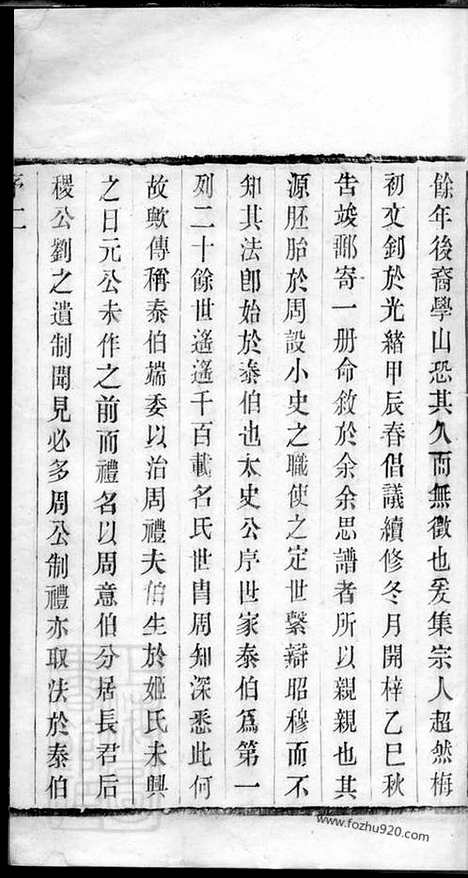 餘年後裔學山恐其久而無徵也爰集宗人超然梅
初文釗於光緒甲辰春倡議續修冬月開梓乙巳秋
告竣郵寄一册命敘於余余思譜者所以親親也其
源胚胎於周設小史之職使之定世繫辯昭穆而不
知其法卽始於泰伯也太史公序世家泰伯爲第一
列二十餘世遙遙千百載名氏世胄周知深悉此何
故歟傳稱泰伯端委以治周禮夫伯生於姬氏未興
之日元公未作之前而禮名以周意伯分居長君后
稷公劉之遺制聞見必多周公制禮亦取法於泰伯
序二
www.fozhu920.com